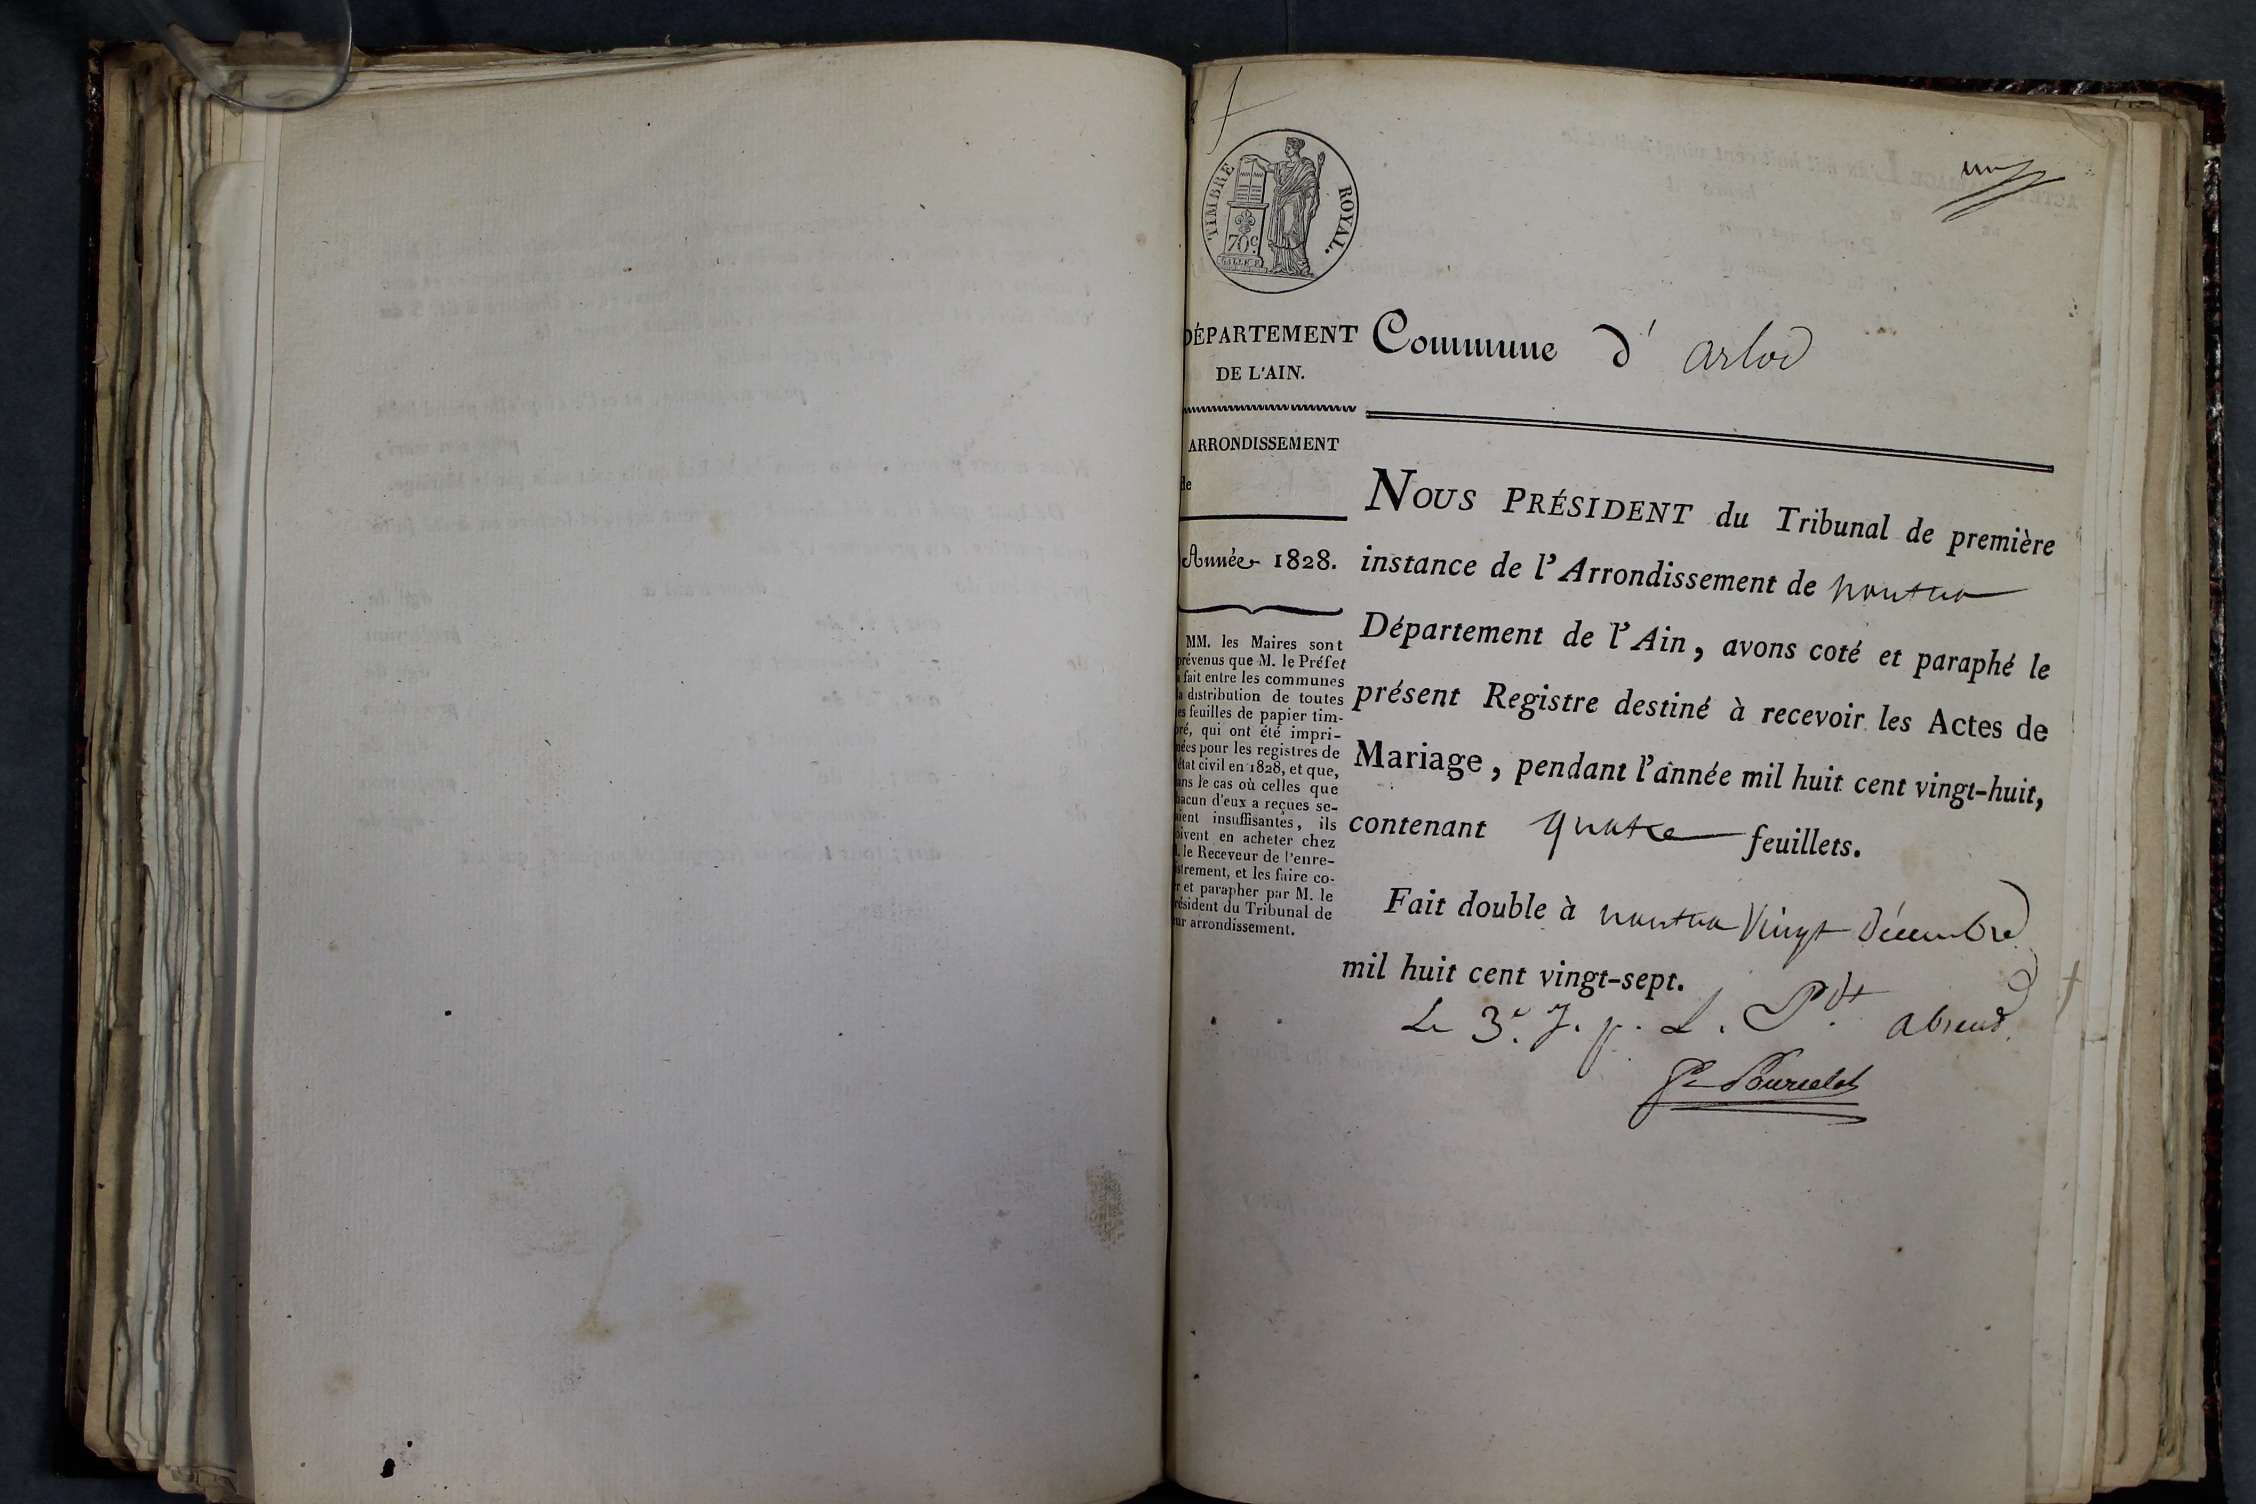 TIMBRE ROYAL.
70c.
un
DÉPARTEMENT
DE L'AIN.
ARRONDISSEMENT
de
Année 1828.
MM. les Maires sont
prévenus que M. le Préfet
a fait entre les communes
la distribution de toutes
les feuilles de papier tim-
bré, qui ont été impri-
mées pour les registres de
l'état civil en 1828, et que,
dans le cas où celles que
chacun d'eux a reçues se-
raient insuffisantes, ils
doivent en acheter chez
M. le Receveur de l'enre-
gistrement, et les faire co-
ter et parapher par M. le
Président du Tribunal de
leur arrondissement.
Commune d' arlod
NOUS PRÉSIDENT du Tribunal de première
instance de l'Arrondissement de nantua
Département de l'Ain, avons coté et paraphé le
présent Registre destiné à recevoir les Actes de
Mariage, pendant l'année mil huit cent vingt-huit,
contenant quatre feuillets.
Fait double à nantua Vingt Décembre
mil huit cent vingt-sept.
Le 3e. J. p. L. Pdt. absent